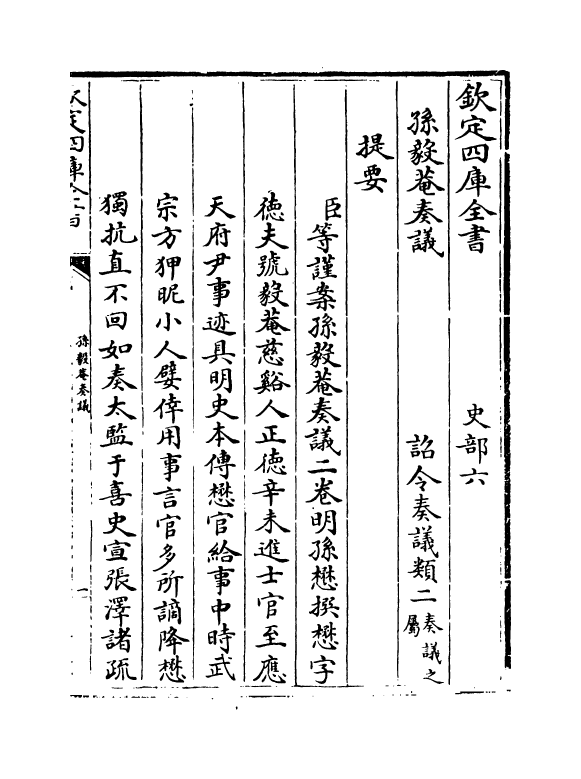 欽定四庫全書　　　史部六
孫毅菴奏議　　　詔令奏議類二奏議之屬
提要
臣等謹案孫毅菴奏議二卷明孫懋撰懋字
徳夫號毅菴慈谿人正徳辛未進士官至應
天府尹事迹具明史本傳懋官給事中時武
宗方狎昵小人嬖倖用事言官多所謫降懋
獨抗直不回如奏太監于喜史宣張澤諸疏
欽定四庫全書
孫毅菴奏議
一